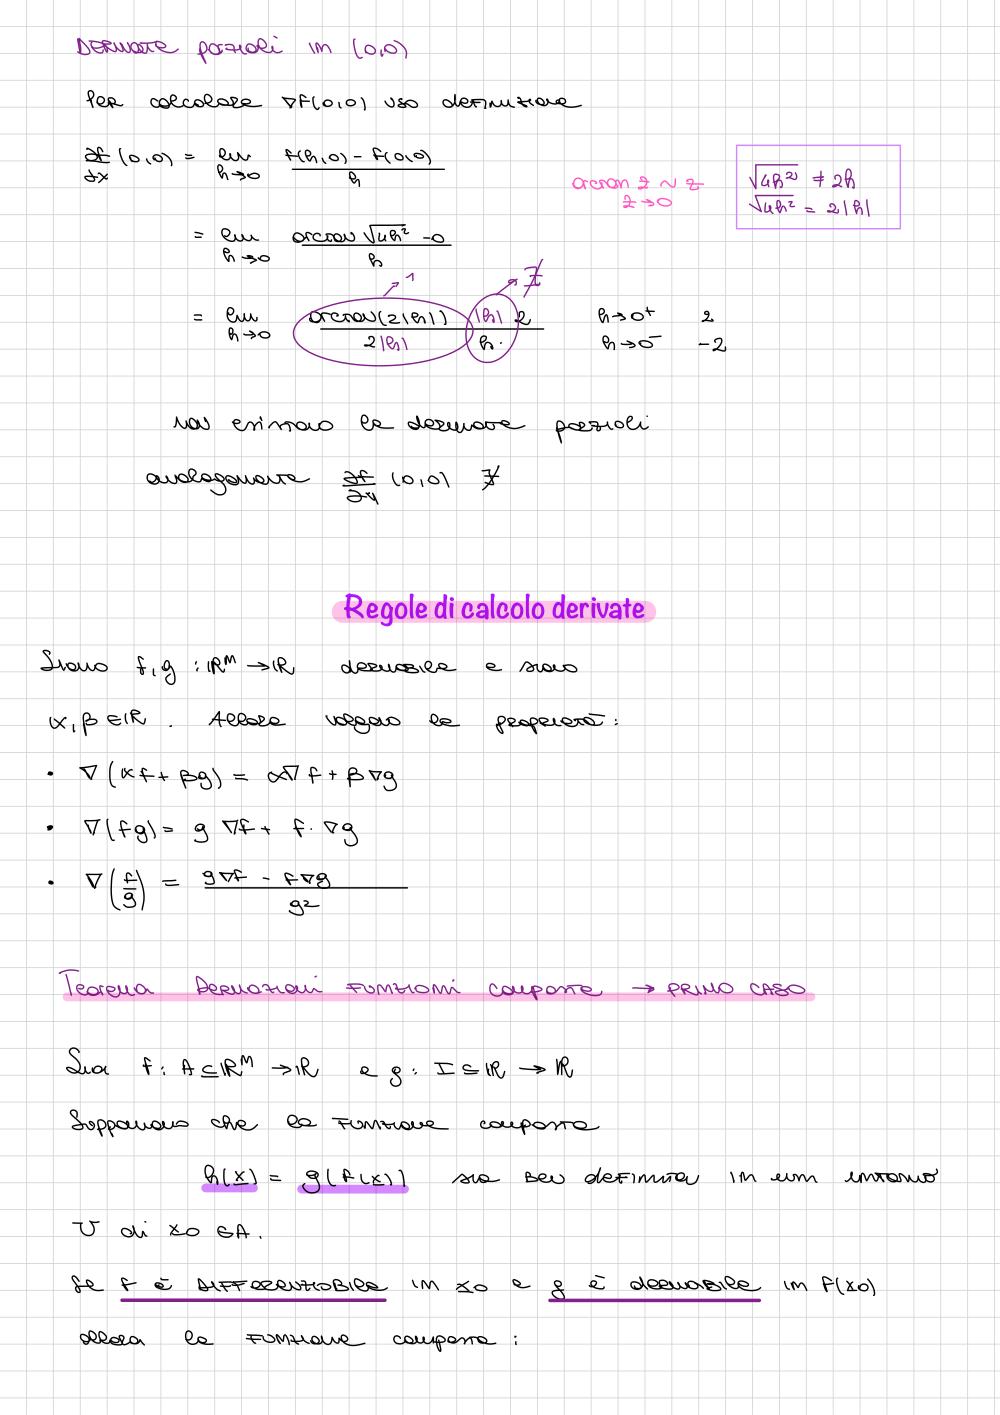 DERIVATE parziali in (0,0)
Per calcolare ∇f(0,0) uso definizione
∂f/∂x (0,0) = lim h→0 (f(h,0) - f(0,0))/h
arctan z ~ z
z→0
√4h² ≠ 2h
√4h² = 2|h|
= lim h→0 (arctan √4h² - 0)/h
= lim h→0 arctan(2|h|)/2|h| →1 |h|/h · 2 →∄
h→0⁺ 2
h→0⁻ -2
non esistono le derivate parziali
analogamente ∂f/∂y (0,0) ∄
Regole di calcolo derivate
Siano f,g : ℝⁿ → ℝ derivabile e siano
α,β ∈ ℝ . Allora valgono le proprietà :
• ∇(αf + βg) = α∇f + β∇g
• ∇(fg) = g ∇f + f · ∇g
• ∇(f/g) = (g∇f - f∇g)/g²
Teorema Derivazioni FUNZIONI composte → PRIMO CASO
Sia f: A⊆ℝⁿ → ℝ e g: I⊆ℝ → ℝ
Supponiamo che la FUNZIONE composta
h(x) = g(f(x)) sia ben definita in un intorno
U di x0 ∈A.
Se f è DIFFERENZIABILE in x0 e g è derivabile in f(x0)
allora la FUNZIONE composta :